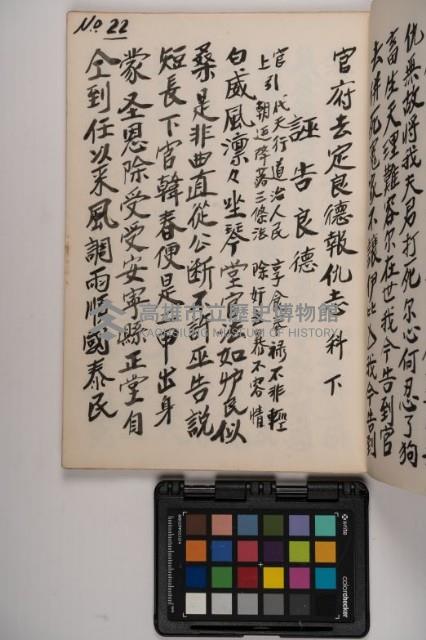 仇無故將我夫易打死尔心何忍了狗
畜生天理難容尔在世我今告到官
官府去定良德報仇李科下
誣告良德
官引 代天行道治人民 享食
祿不非輕
上 朝廷降著三條法 除奸
不容情
白威風凛々坐琴堂官法如炉民似
桑是非曲直從公断不
巫告説
短長下官韓春便是
甲出身
蒙圣恩除受受安寧縣正堂自
仝到任以来風調雨順國泰民
No 22
高雄市立歷史博物館
KAOHSIUNG MUSEUM OF HISTORY
x-rite
colorchecker